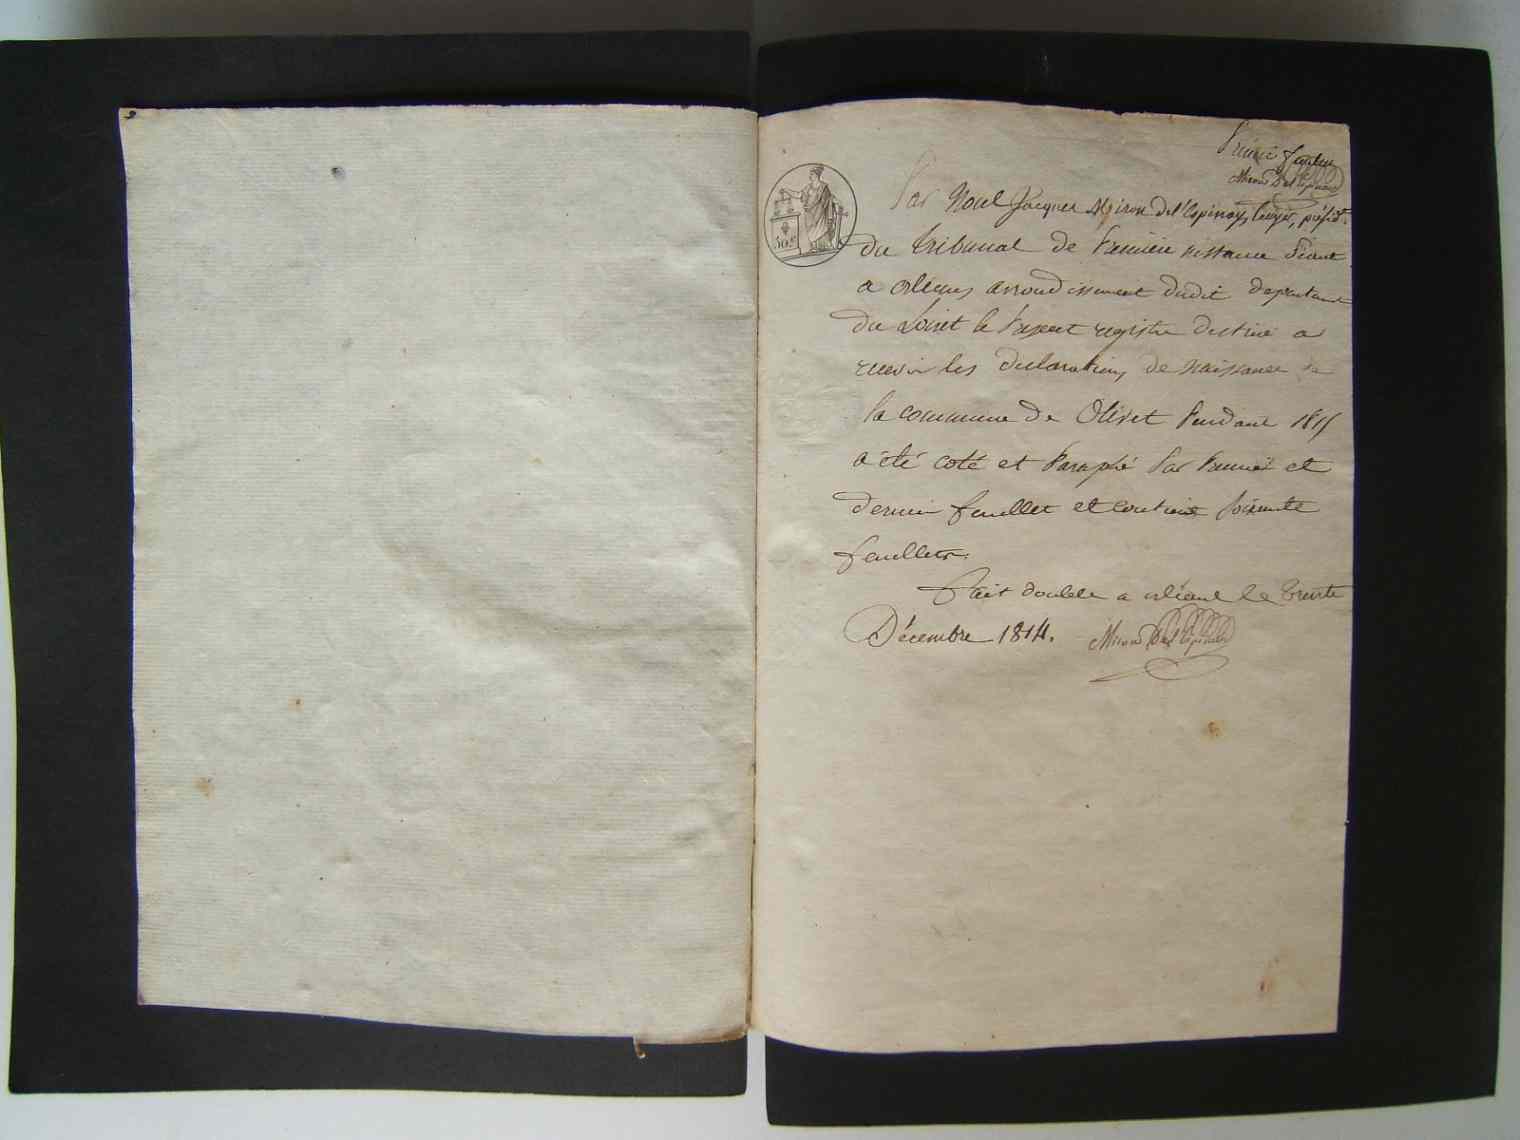 Premier feuillet
Miron Del'Espinay
50 c
Par Noel Jacques Miron del'Espinay, Ecuyer, présidt.
du tribunal de premiere instance séant
a orléans arrondissement dudit departement
du Loiret le present registre destiné a
recevoir les declarations de naissance de
la commune de Olivet pendant 1815
a été coté et paraphé par premier et
dernier feuillet et contient soixante
feuillets.
Fait double a orléans le trente
Décembre 1814. Miron Del'Espinay